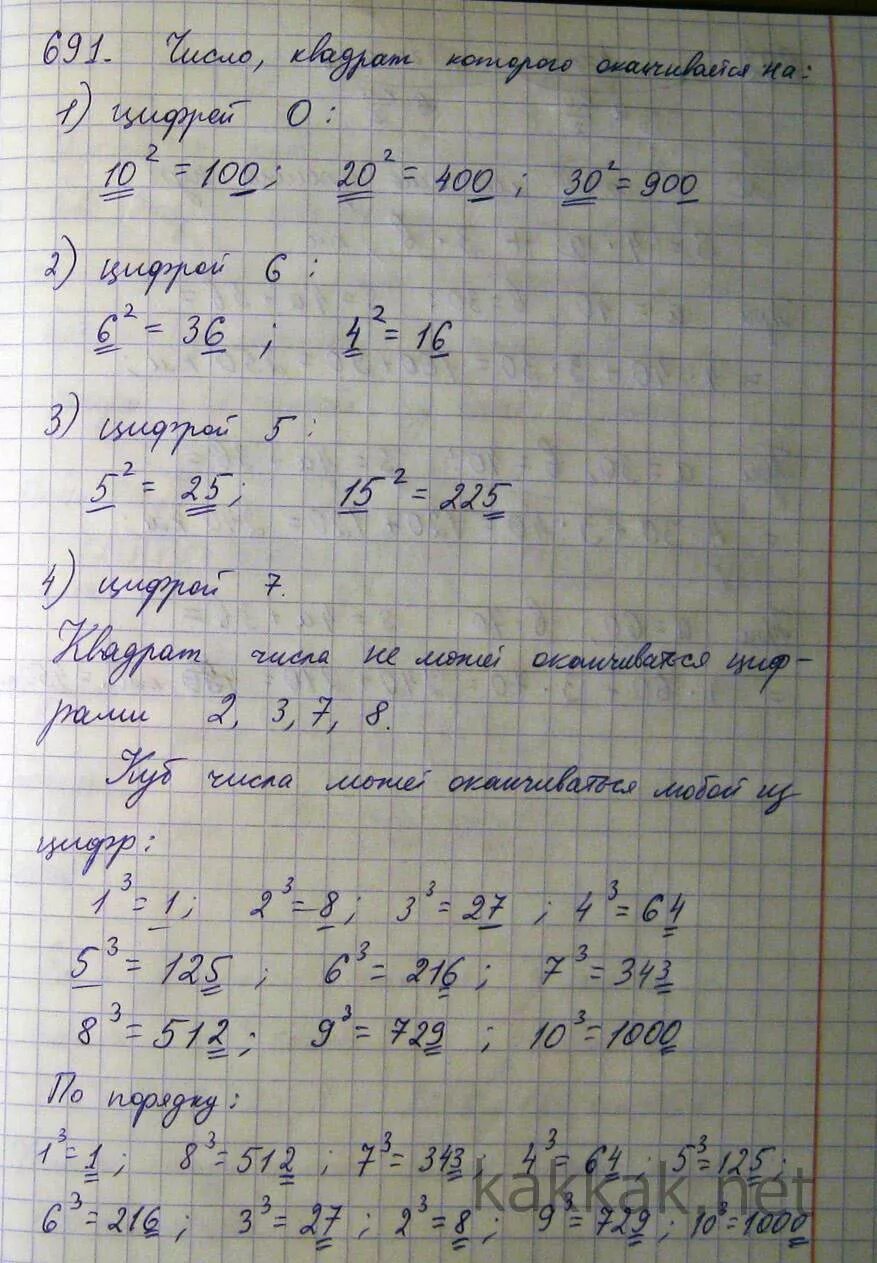 691. Число, квадрат которого оканчивается на:
1) цифрой 0:
10² = 100; 20² = 400; 30² = 900
2) цифрой 6:
6² = 36; 4² = 16
3) цифрой 5:
5² = 25; 15² = 225
4) цифрой 7.
Квадрат числа не может оканчиваться циф-
рами 2, 3, 7, 8.
Куб числа может оканчиваться любой из
цифр:
1³ = 1; 2³ = 8; 3³ = 27; 4³ = 64
5³ = 125; 6³ = 216; 7³ = 343
8³ = 512; 9³ = 729; 10³ = 1000
По порядку:
1³ = 1; 8³ = 512; 7³ = 343; 4³ = 64; 5³ = 125;
kakkak.net
6³ = 216; 3³ = 27; 2³ = 8; 9³ = 729; 10³ = 1000